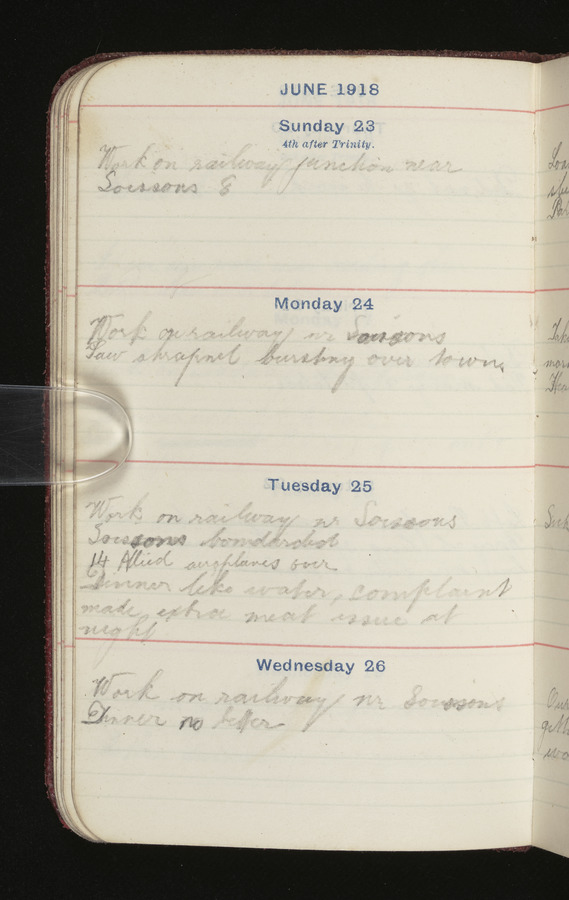 JUNE 1918
Sunday 23
4th after Trinity.
Work on railway junction near
Soissons &
Monday 24
Work on railway nr Soissons
Saw shrapnel bursting over town
Tuesday 25
Work on railway nr Soissons
Soissons bombarded
14 Allied aeroplanes over
Dinner like water, complaint
made, extra meat issue at
night
Wednesday 26
Work on railway nr Soissons
Dinner no better